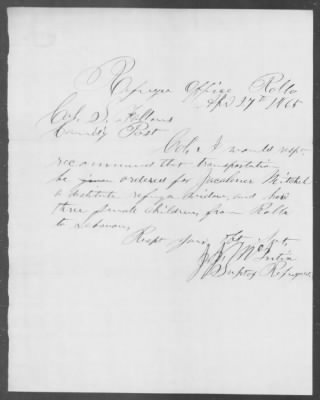 Refugee Office Rolla
Apr 17th 1865
Col. S. Fellows
Comdg Post
Col. I would resp.
recommend that transportation
be given ordered for Jacaline Mitchel
a destitute refugee widow, and her
three female children from Rolla
to Lebanon
Respt your obt Svt
J.
Supt of Refugees